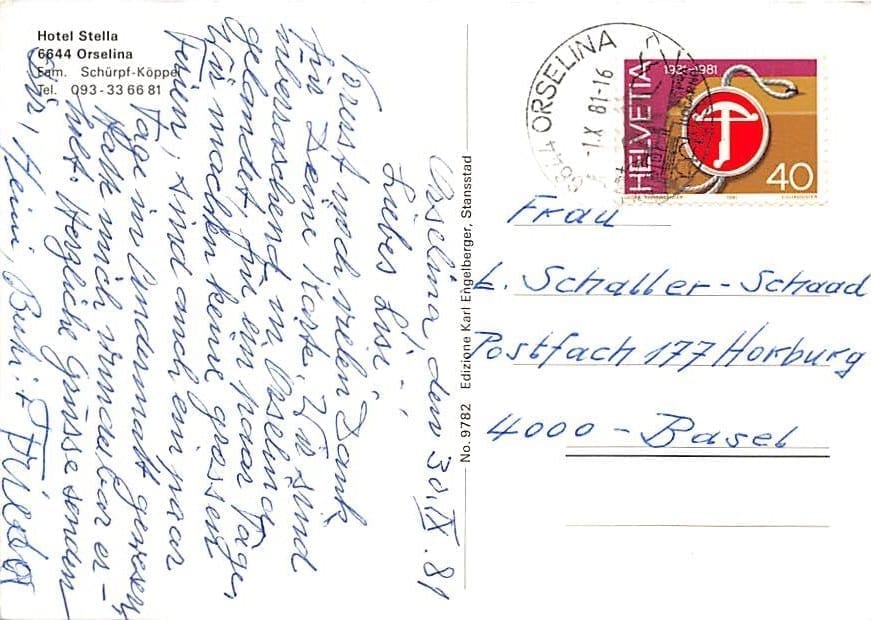 Hotel Stella
6644 Orselina
Fam. Schürpf-Köppel
Tel. 093-33 66 81
Orselina, den 30.IX.81
Liebes Lisi,
Vorerst noch vielen Dank
für Deine Karte. Wir sind
überraschend in Orselina
gelandet für ein paar Tage,
Wir machen keine grossen
Ferien, sind auch ein paar
Tage in Andermatt gewesen
hatt mich wunderbar er-
holt. Herzliche Grüsse senden
Dir, Heini, Buki + Frieda
No. 9782 Edizione Karl Engelberger, Stansstad
6644 ORSELINA
-1.X 81-16
1931-1981
HELVETIA
40
Frau
L. Schaller-Schaad
Postfach 177 Horburg
4000 - Basel